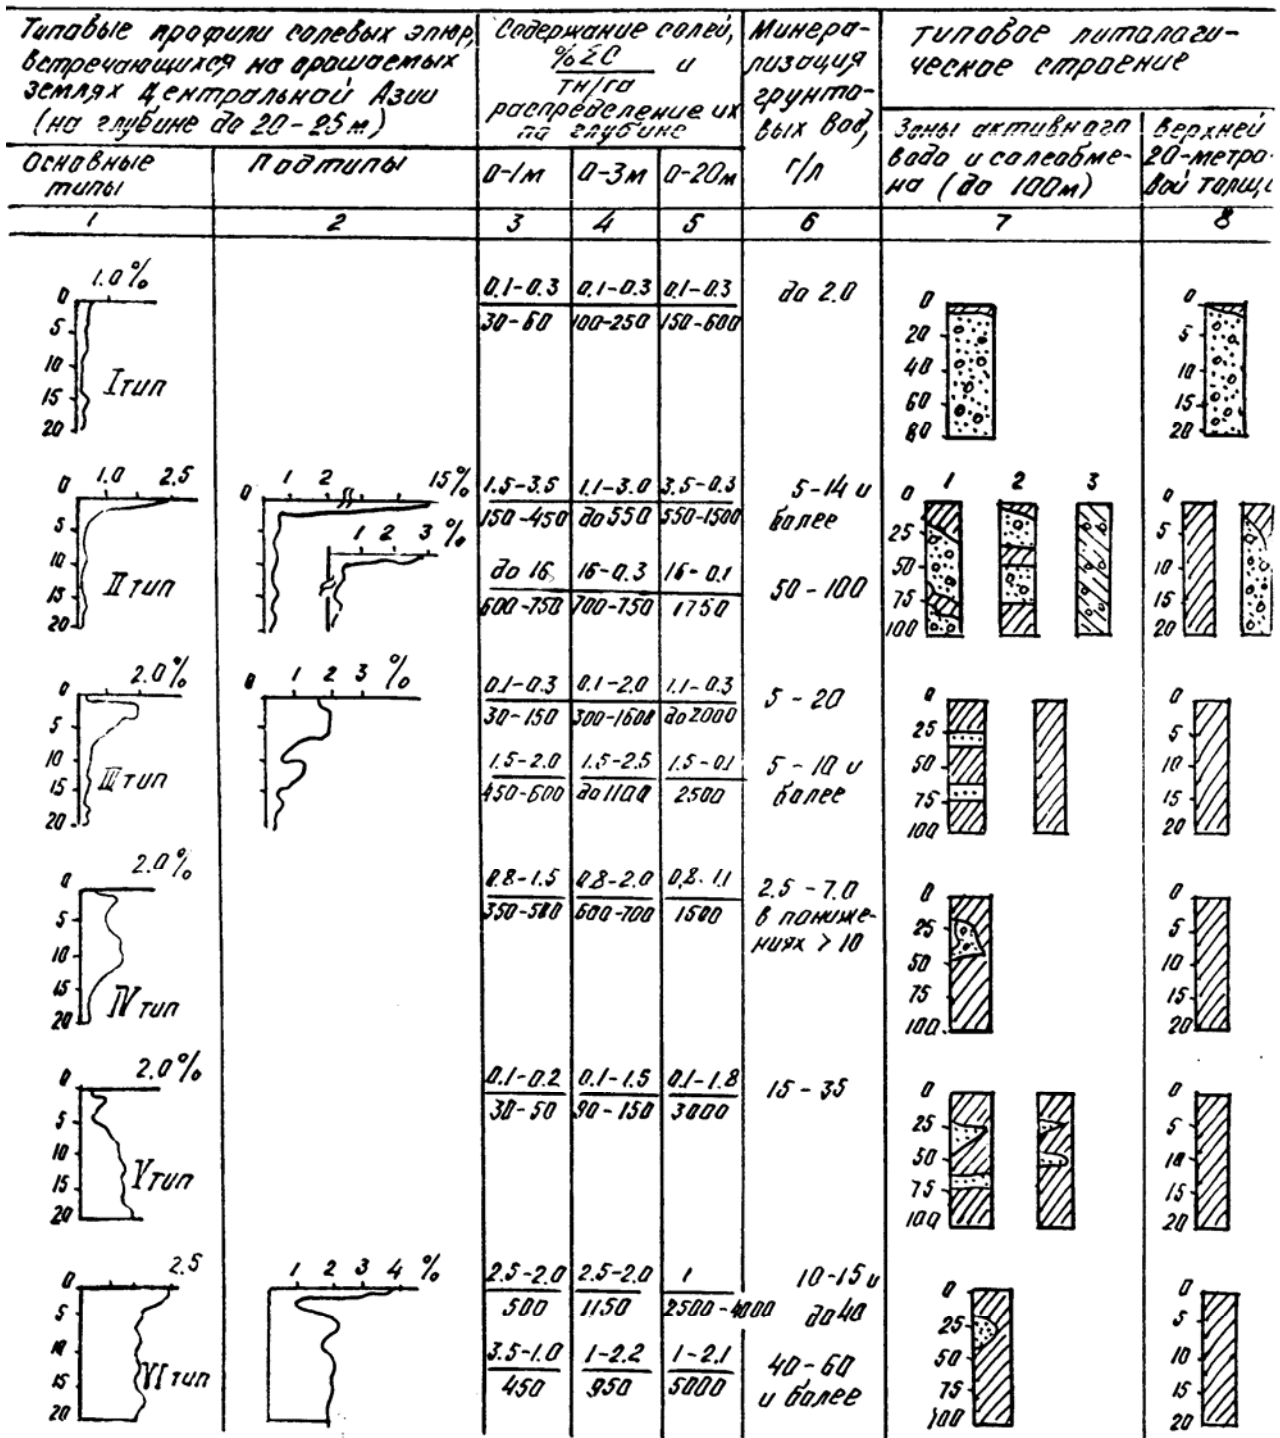 Типовые профили солевых эпюр,
встречающихся на орошаемых
землях Центральной Азии
(на глубине до 20-25 м)
Содержание солей,
% ΣС и
тн/га
распределение их
по глубине
Минера-
лизация
грунто-
вых вод,
г/л
Типовое литологи-
ческое строение
Основные
типы
Подтипы
0-1м
0-3м
0-20м
Зоны активного
водо и солеобме-
на (до 100м)
Верхней
20-метро-
вой толщи
1 2 3 4 5 6 7 8
1.0%
0
5
10
15
20
I тип
0.1-0.3 0.1-0.3 0.1-0.3
30-60 100-250 150-600
до 2.0
0
20
40
60
80
0
5
10
15
20
1.0 2.5
0
5
10
15
20
II тип
0 1 2 15%
1 2 3 %
1.5-3.5 1.1-3.0 3.5-0.3
150-450 до 550 550-1500
5-14 и
более
до 16 16-0.3 16-0.1
600-750 700-750 1750
50-100
1 2 3
0
25
50
75
100
0
5
10
15
20
2.0%
0
5
10
15
20
III тип
0 1 2 3 %
0.1-0.3 0.1-2.0 1.1-0.3
30-150 300-1600 до 2000
5-20
1.5-2.0 1.5-2.5 1.5-0.1
450-600 до 1100 2500
5-10 и
более
0
25
50
75
100
0
5
10
15
20
2.0%
0
5
10
15
20
IV тип
0.8-1.5 0.8-2.0 0.8-1.1
350-500 600-700 1500
2.5-7.0
в пониже-
ниях > 10
0
25
50
75
100
0
5
10
15
20
2.0%
0
5
10
15
20
V тип
0.1-0.2 0.1-1.5 0.1-1.8
30-50 90-150 3000
15-35
0
25
50
75
100
0
5
10
15
20
2.5
0
5
10
15
20
VI тип
1 2 3 4 %
2.5-2.0 2.5-2.0 1
500 1150 2500-4000
10-15 и
до 40
3.5-1.0 1-2.2 1-2.1
450 950 5000
40-60
и более
0
25
50
75
100
0
5
10
15
20